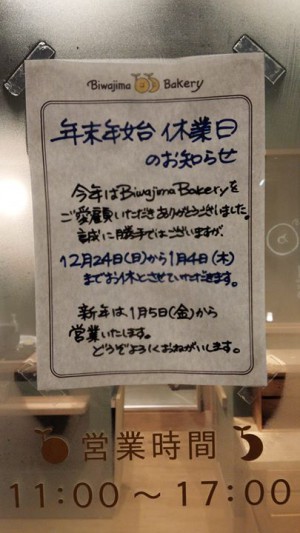 Biwajima Bakery
年末年始 休業日
のお知らせ
今年はBiwajima Bakeryを
ご愛顧いただきありがとうございました。
誠に勝手ではございますが、
12月24日(日)から1月4日(木)
までお休とさせていただきます。
新年は1月5日(金)から
営業いたします。
どうぞよろしくおねがいします。
営業時間
11:00～17:00